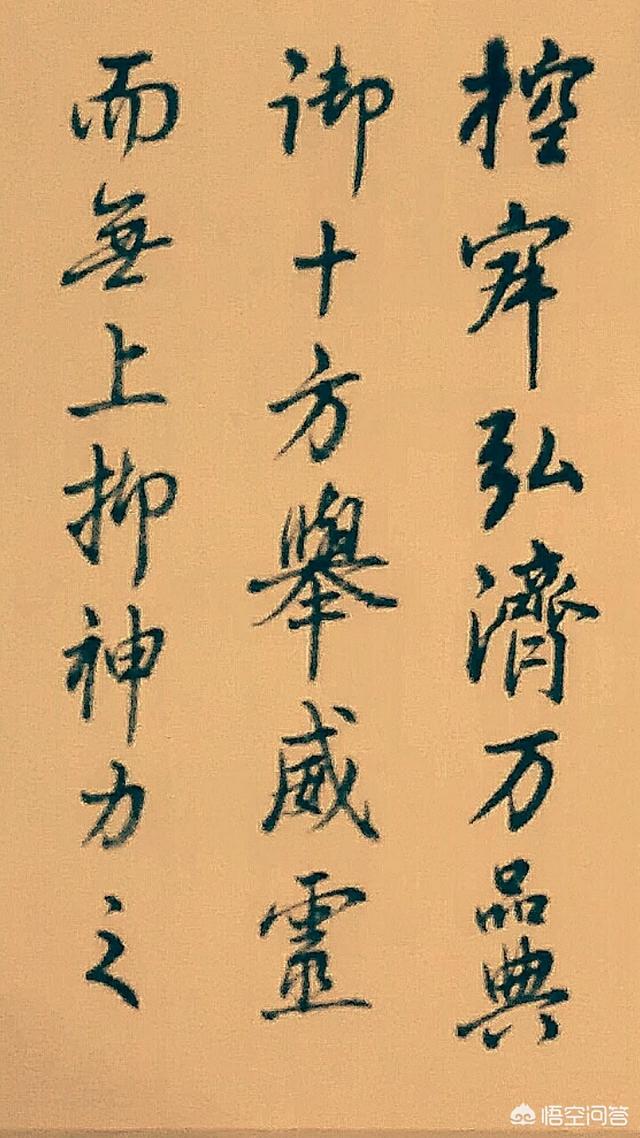 控寂弘濟万品典
御十方舉威靈
而無上抑神力之
悟空问答